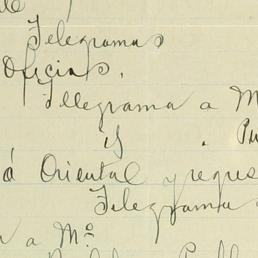 Telegramas
Oficios.
Telegrama a M
y . Pu
á Oriental y regres
Telegrama
a Mº